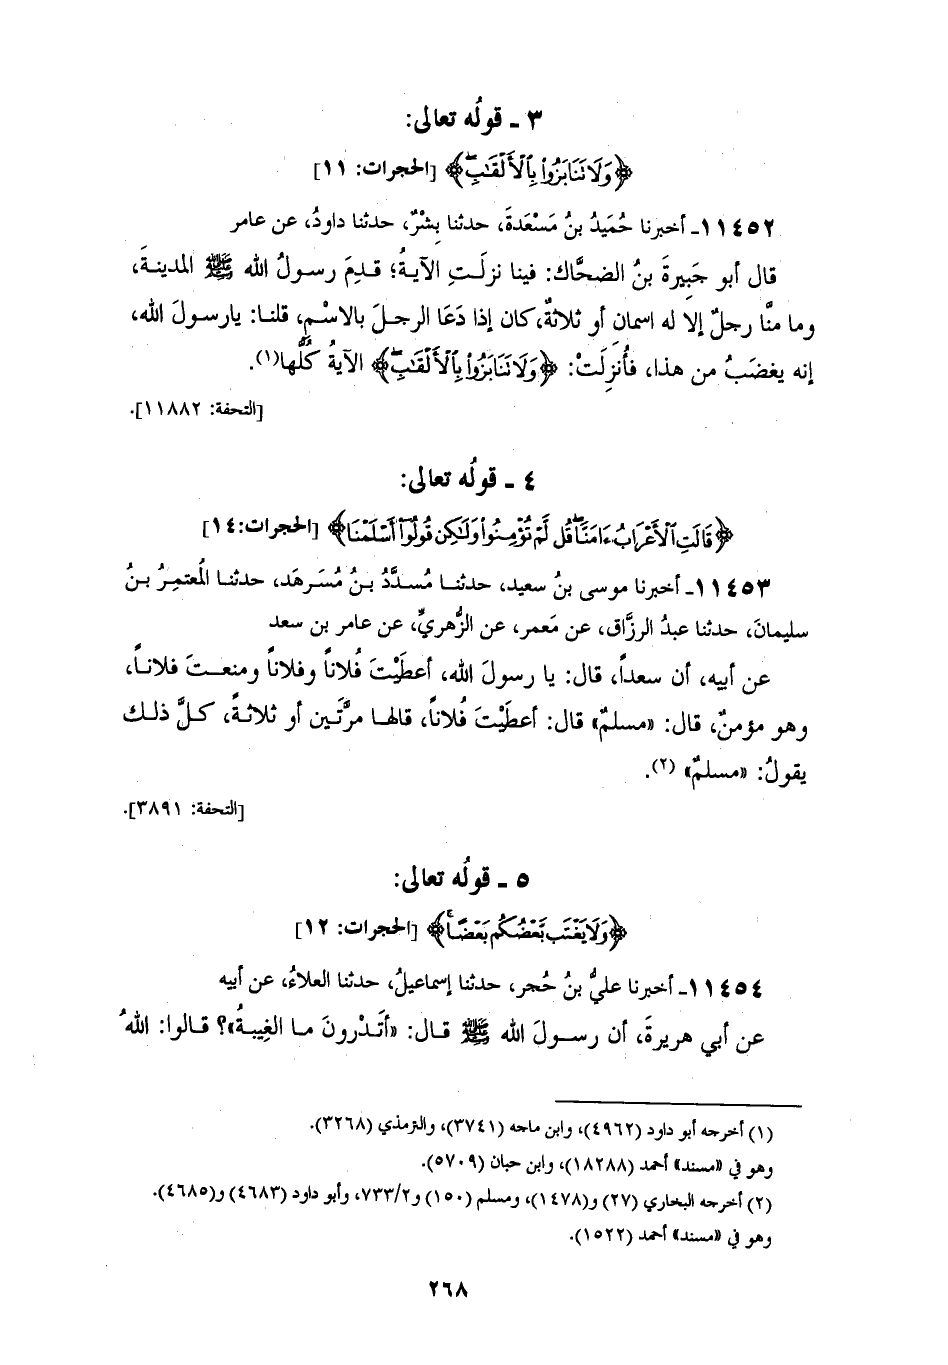 ٣ ـ قولُه تعالى:
﴿وَلَا تَنَابَزُوا۟ بِٱلْأَلْقَٰبِ ۖ﴾ [الحجرات: ١١]
١١٤٥٢ـ أخبرنا حُمَيدُ بنُ مَسْعَدةَ، حدثنا بِشْرٌ، حدثنا داودُ، عن عامر
قال أبو جَبِيرةَ بنُ الضحَّاك: فينا نزلَتِ الآيةُ؛ قدِمَ رسولُ الله ﷺ المدينةَ،
وما منَّا رجلٌ إلا له اسمان أو ثلاثةٌ،كان إذا دَعَا الرجلَ بالاسْمِ، قلنا: يارسولَ الله،
إنه يغضَبُ من هذا، فأُنزِلَتْ: ﴿وَلَا تَنَابَزُوا۟ بِٱلْأَلْقَٰبِ ۖ﴾ الآيةُ كُلُّها(١).
[التحفة: ١١٨٨٢].
٤ ـ قولُه تعالى:
﴿قَالَتِ ٱلْأَعْرَابُ ءَامَنَّا ۖ قُل لَّمْ تُؤْمِنُوا۟ وَلَٰكِن قُولُوٓا۟ أَسْلَمْنَا﴾ [الحجرات:١٤]
١١٤٥٣ـ أخبرنا موسى بنُ سعيد، حدثنا مُسدَّدُ بنُ مُسَرهَد، حدثنا المُعتمِرُ بنُ
سليمانَ، حدثنا عبدُ الرزَّاق، عن مَعمر، عن الزُّهريِّ، عن عامر بن سعد
عن أبيه، أن سعداً، قال: يا رسولَ الله، أعطَيْتَ فُلاناً وفلاناً ومنعتَ فلاناً،
وهو مؤمنٌ، قال: «مسلمٌ» قال: أعطَيْتَ فُلاناً، قالها مرَّتَين أو ثلاثةً، كلَّ ذلك
يقولُ: «مسلمٌ» (٢).
[التحفة: ٣٨٩١].
٥ ـ قولُه تعالى:
﴿وَلَا يَغْتَب بَّعْضُكُم بَعْضًا ۚ﴾ [الحجرات: ١٢]
١١٤٥٤ـ أخبرنا عليُّ بنُ حُجر، حدثنا إسماعيلُ، حدثنا العلاءُ، عن أبيه
عن أبي هريرةَ، أن رسولَ الله ﷺ قال: «أتَدْرونَ ما الغِيبةُ»؟ قالوا: اللهُ
(١) أخرجه أبو داود (٤٩٦٢)، وابن ماجه (٣٧٤١)، والترمذي (٣٢٦٨).
وهو في «مسند» أحمد (١٨٢٨٨)، وابن حبان (٥٧٠٩).
(٢) أخرجه البخاري (٢٧) و(١٤٧٨)، ومسلم (١٥٠) و٧٣٣/٢، وأبو داود (٤٦٨٣) و(٤٦٨٥).
وهو في «مسند» أحمد (١٥٢٢).
٢٦٨